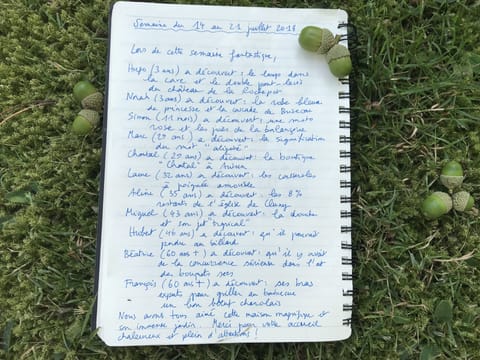 Semaine du 14 au 21 juillet 2018
Lors de cette semaine fantastique,
Hugo (3 ans) a découvert : le loup dans
la cave et le double pont levis
du château de la Rochepot
Noah (3 ans) a découvert : la robe bleue
de princesse et la cascade de
Simon (11 mois) a découvert : une moto
rose et les joies de la balançoire
Marc (29 ans) a découvert : la signification
du mot "aligoté"
Chantal (29 ans) a découvert : la boutique
"Chatal" à
Laure (32 ans) a découvert : les casseroles
à poignée amovible
Aline (35 ans) a découvert : les 8%
restants de l'église de Cluny
Miguel (43 ans) a découvert : la douche
et son jet "tropical"
Hubert (46 ans) a découvert : qu'il pouvait
perdre au billard
Béatrice (60 ans +) a découvert : qu'il y avait
de la concurrence sérieuse dans l'art
des bouquets secs
François (60 ans +) a découvert : ses bras
experts pour griller au barbecue
un bon bœuf charolais
Nous avons tous aimé cette maison magnifique et
son immense jardin... Merci pour votre accueil
chaleureux et plein d'attentions !